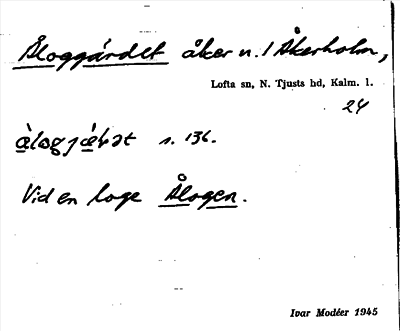 Åloggärdet åker n. / Åkerholm,
Lofta sn, N. Tjusts hd, Kalm. l.
24
s. 136.
Vid en loge Ålogen.
Ivar Modéer 1945